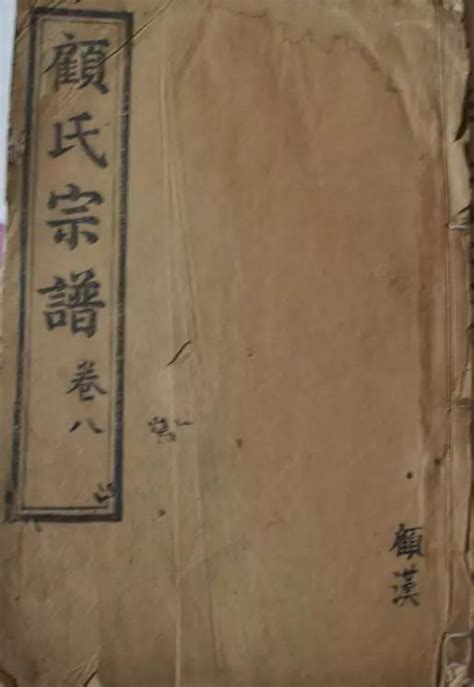 顧氏宗譜 卷八
顧漢